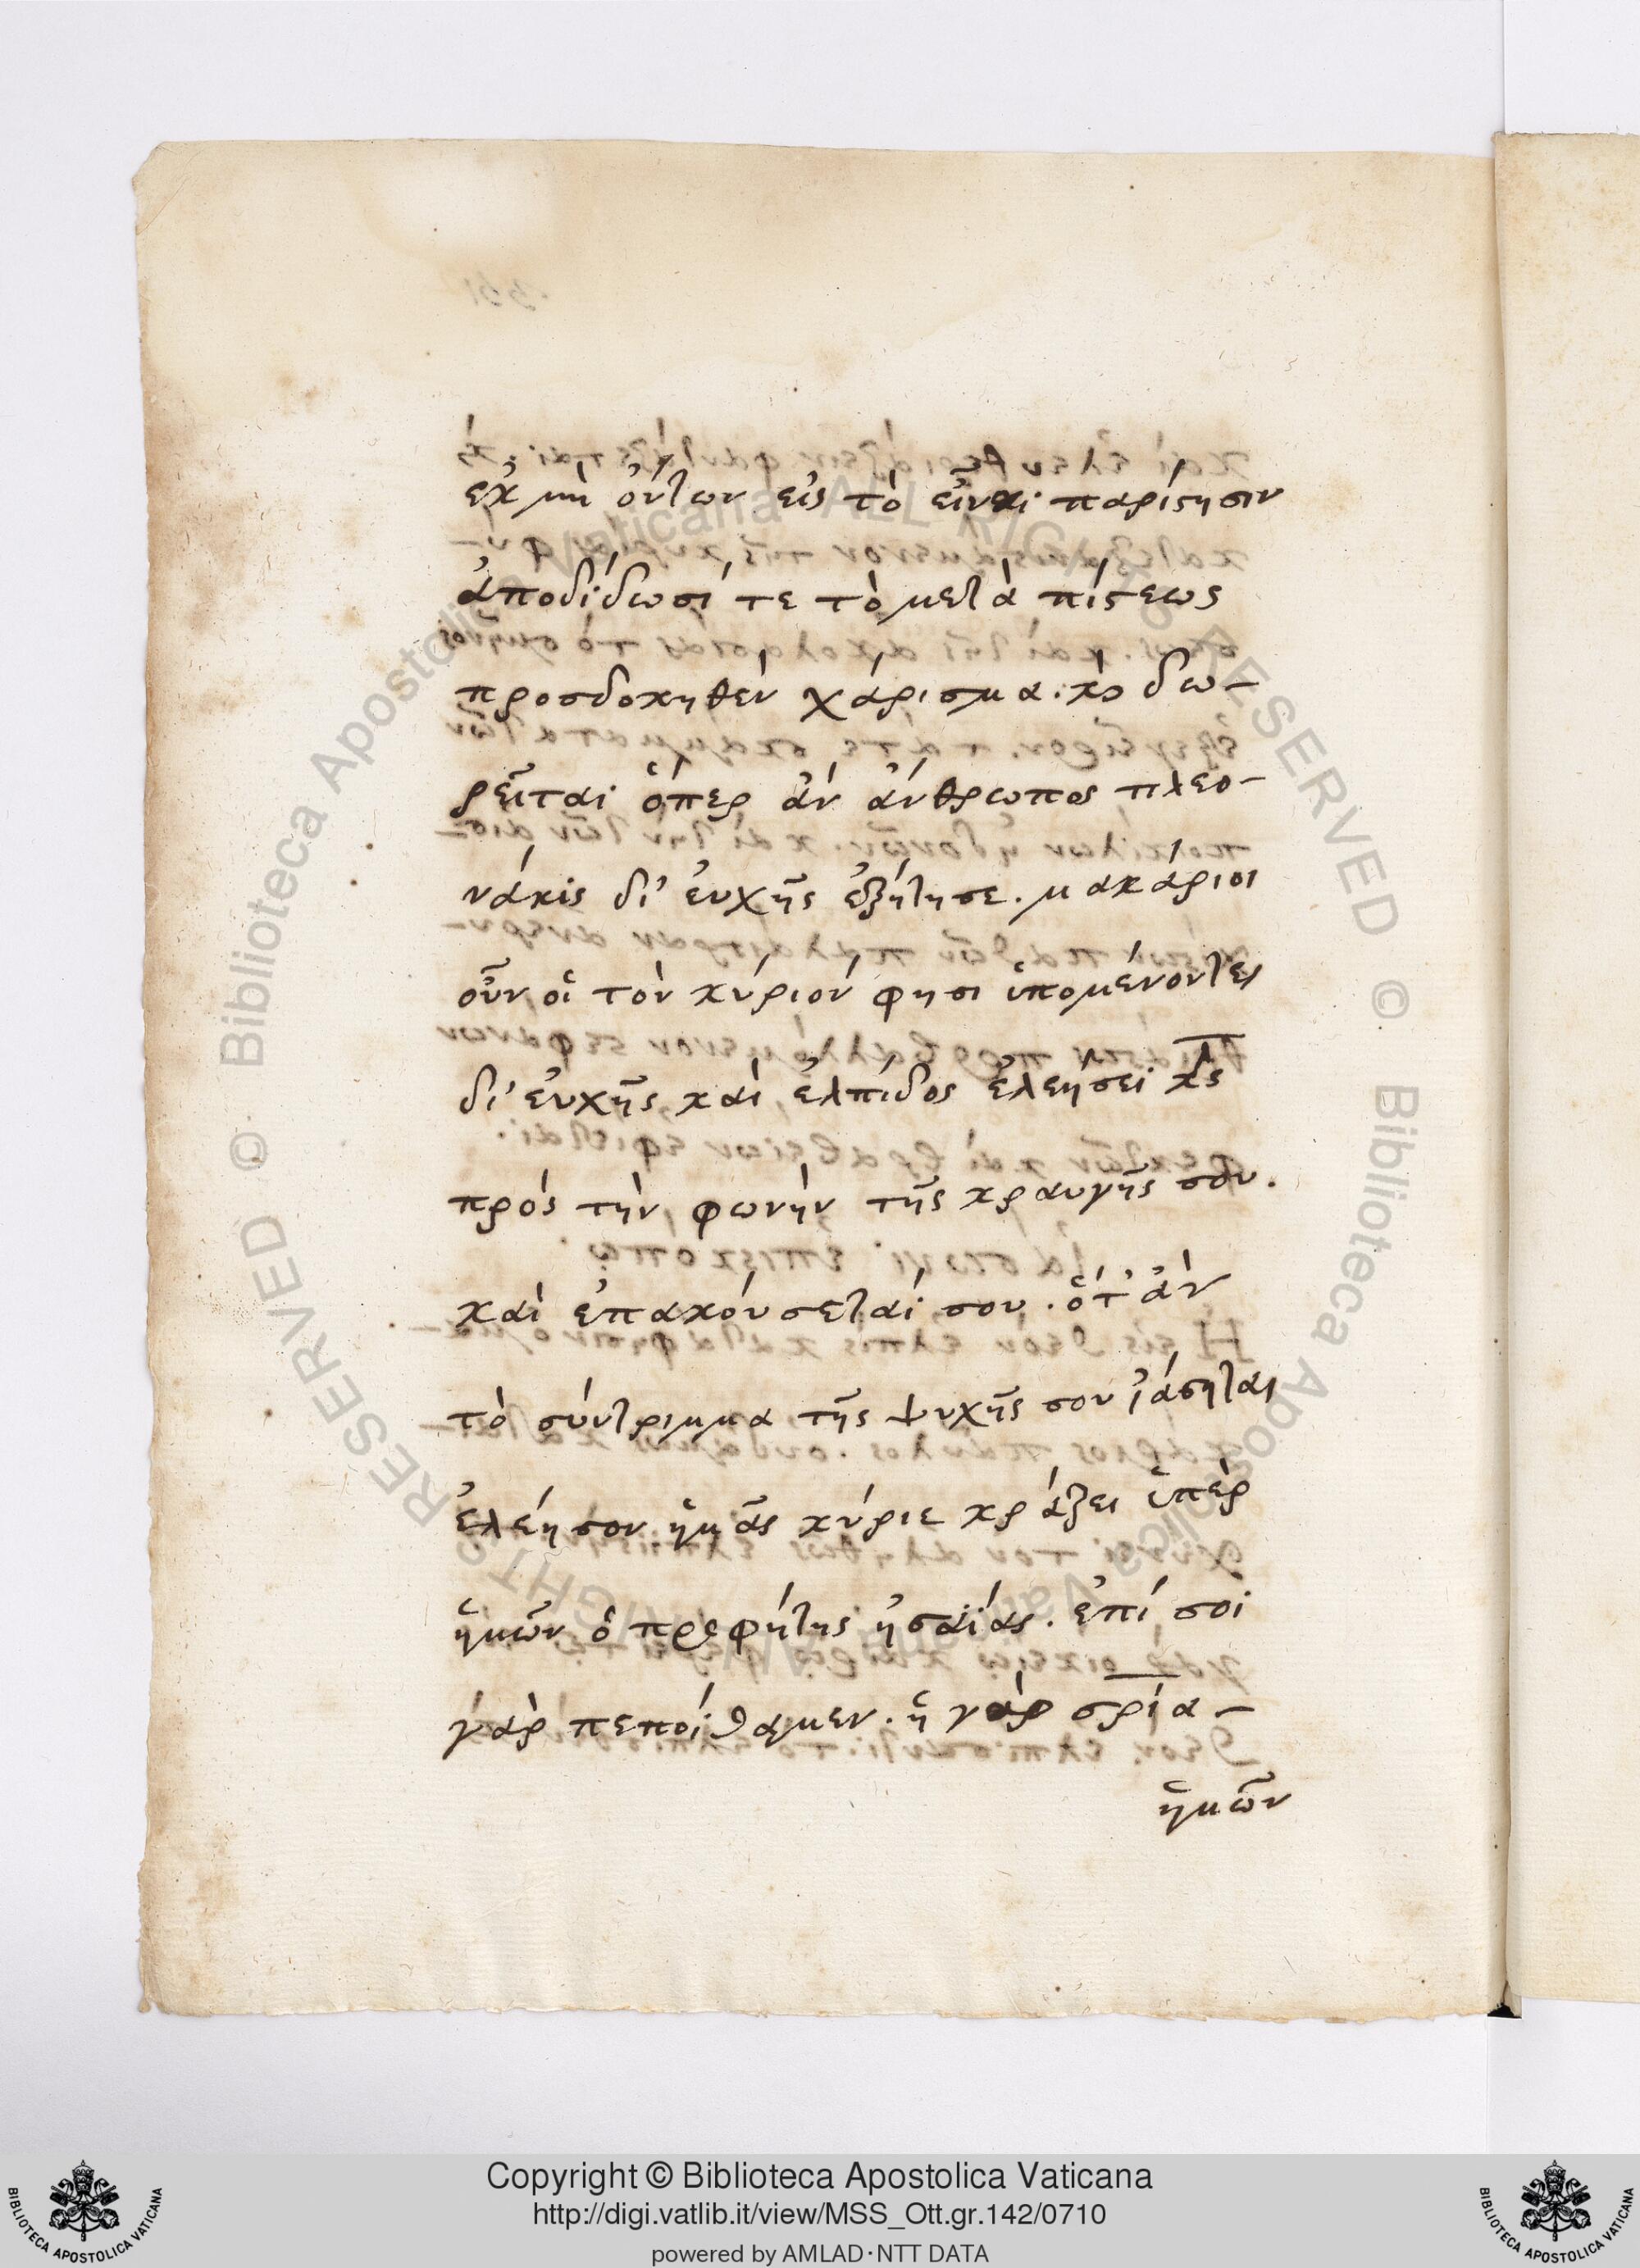 ἐκ μὴ ὄντων εἰς τὸ εἶναι παρίστησιν
ἀποδίδωσί τε τὸ μετὰ πίστεως
προσδοκηθὲν χάρισμα. κ̀ δω-
ρεῖται ὅπερ ἂν ἄνθρωπος πλεο-
νάκις δι' ἐυχῆς ἐζήτησε. μακάριοι
οὖν οἱ τὸν κύριόν φησι ὑπομένοντες
δι' ἐυχῆς καὶ ἐλπίδος ἐλεήσει κ̅ς̅
πρὸς τὴν φωνὴν τῆς κραυγῆς σου.
καὶ ἐπακούσεταί σου. ὅτ' ἂν
τὸ σύντριμμα τῆς ψυχῆς σου ἰάσηται
ἐλέησον ἡμᾶς κύριε κράζει ὑπὲρ
ἡμῶν ὁ προφήτης ἠσαΐας. ἐπί σοι
γὰρ πεποίθαμεν. ἡ γὰρ σ̅ρ̅ί̅α̅-
ἡμῶν
Copyright © Biblioteca Apostolica Vaticana
http://digi.vatlib.it/view/MSS_Ott.gr.142/0710
powered by AMLAD·NTT DATA
BIBLIOTECA APOSTOLICA VATICANA
BIBLIOTECA APOSTOLICA VATICANA